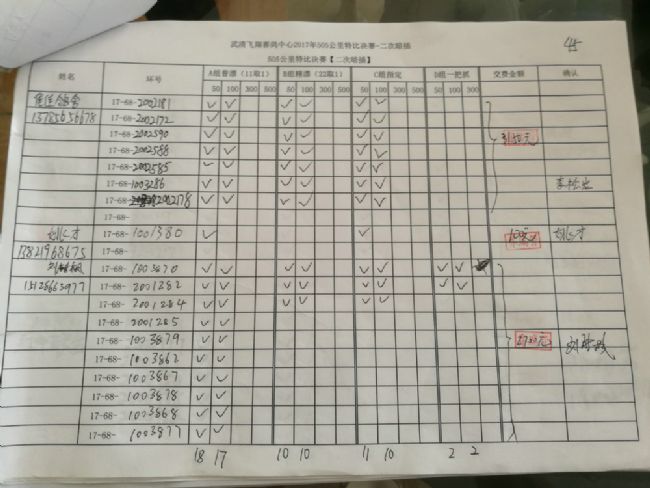 武清飞翔赛鸽中心2017年505公里特比决赛-二次暗插
505公里特比决赛【二次暗插】
姓名 环号 A组普漂（11取1） B组精漂（22取1） C组指定 D组一把抓 交费金额 确认
50 100 300 500 50 100 300 500 50 100 300 500 50 100 300
17-68-2002181 ✓ ✓ ✓ ✓ ✓ ✓
17-68-2002172 ✓ ✓ ✓ ✓ ✓ ✓
17-68-2002590 ✓ ✓ ✓ ✓ ✓ ✓
17-68-2002588 ✓ ✓ ✓ ✓ ✓ ✓
17-68-2002585 ✓ ✓ ✓ ✓ ✓ ✓
17-68-1003286 ✓ ✓ ✓ ✓ ✓ ✓
17-68-2002178 ✓ ✓ ✓ ✓ ✓ ✓
17-68-
17-68-1001380 ✓ ✓
13821968675 17-68-
17-68-1003870 ✓ ✓ ✓ ✓ ✓ ✓ ✓ ✓
17-68-2001282 ✓ ✓ ✓ ✓ ✓ ✓ ✓ ✓
17-68-2001284 ✓ ✓ ✓ ✓ ✓ ✓
17-68-2001285 ✓ ✓
17-68-1003879 ✓ ✓
17-68-1003862 ✓ ✓
17-68-1003867 ✓ ✓
17-68-1003878 ✓ ✓
17-68-1003868 ✓ ✓
17-68-1003877 ✓ ✓
18 17 10 10 11 10 2 2